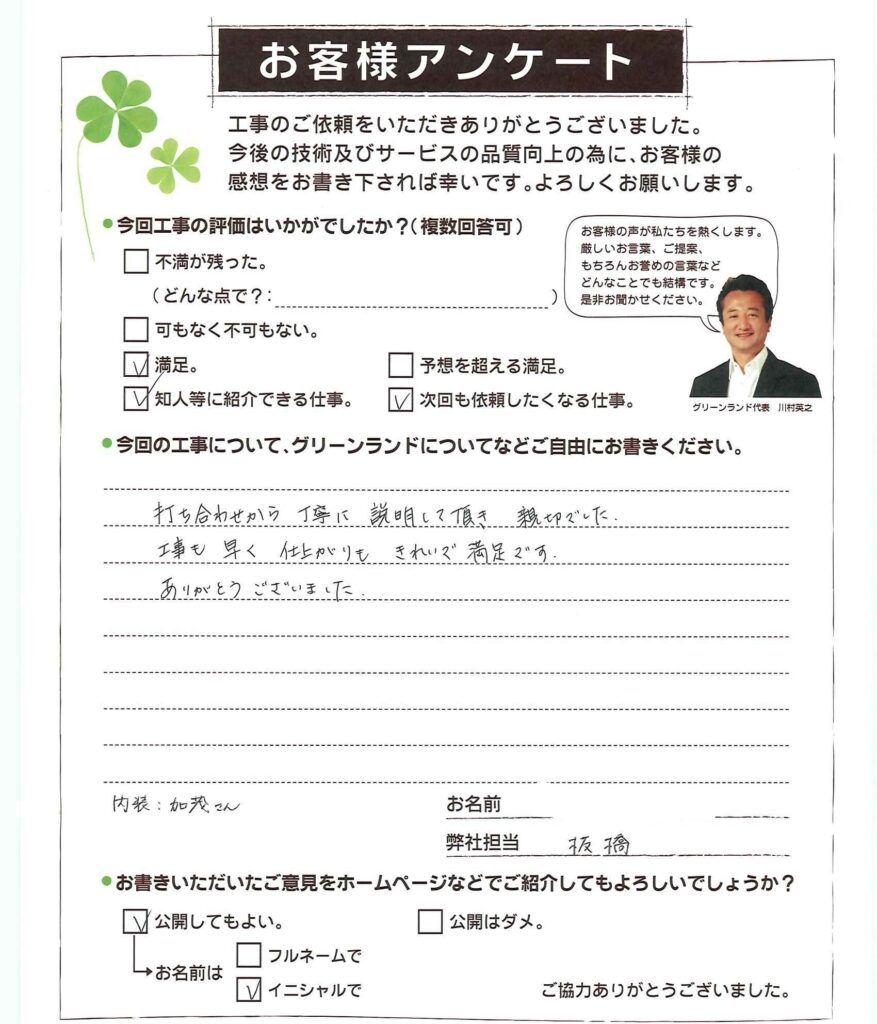 お客様アンケート
工事のご依頼をいただきありがとうございました。
今後の技術及びサービスの品質向上の為に、お客様の
感想をお書き下されば幸いです。よろしくお願いします。
●今回工事の評価はいかがでしたか？(複数回答可)
不満が残った。
(どんな点で？: )
可もなく不可もない。
満足。
予想を超える満足。
知人等に紹介できる仕事。
次回も依頼したくなる仕事。
お客様の声が私たちを熱くします。
厳しいお言葉、ご提案、
もちろんお誉めの言葉など
どんなことでも結構です。
是非お聞かせください。
グリーンランド代表 川村英之
●今回の工事について、グリーンランドについてなどご自由にお書きください。
打ち合わせから 丁寧に 説明して頂き 親切でした.
工事も 早く 仕上がりも きれいで 満足です.
ありがとう ございました.
内装：加茂さん
お名前
弊社担当 板橋
●お書きいただいたご意見をホームページなどでご紹介してもよろしいでしょうか？
公開してもよい。
公開はダメ。
お名前は
フルネームで
イニシャルで
ご協力ありがとうございました。